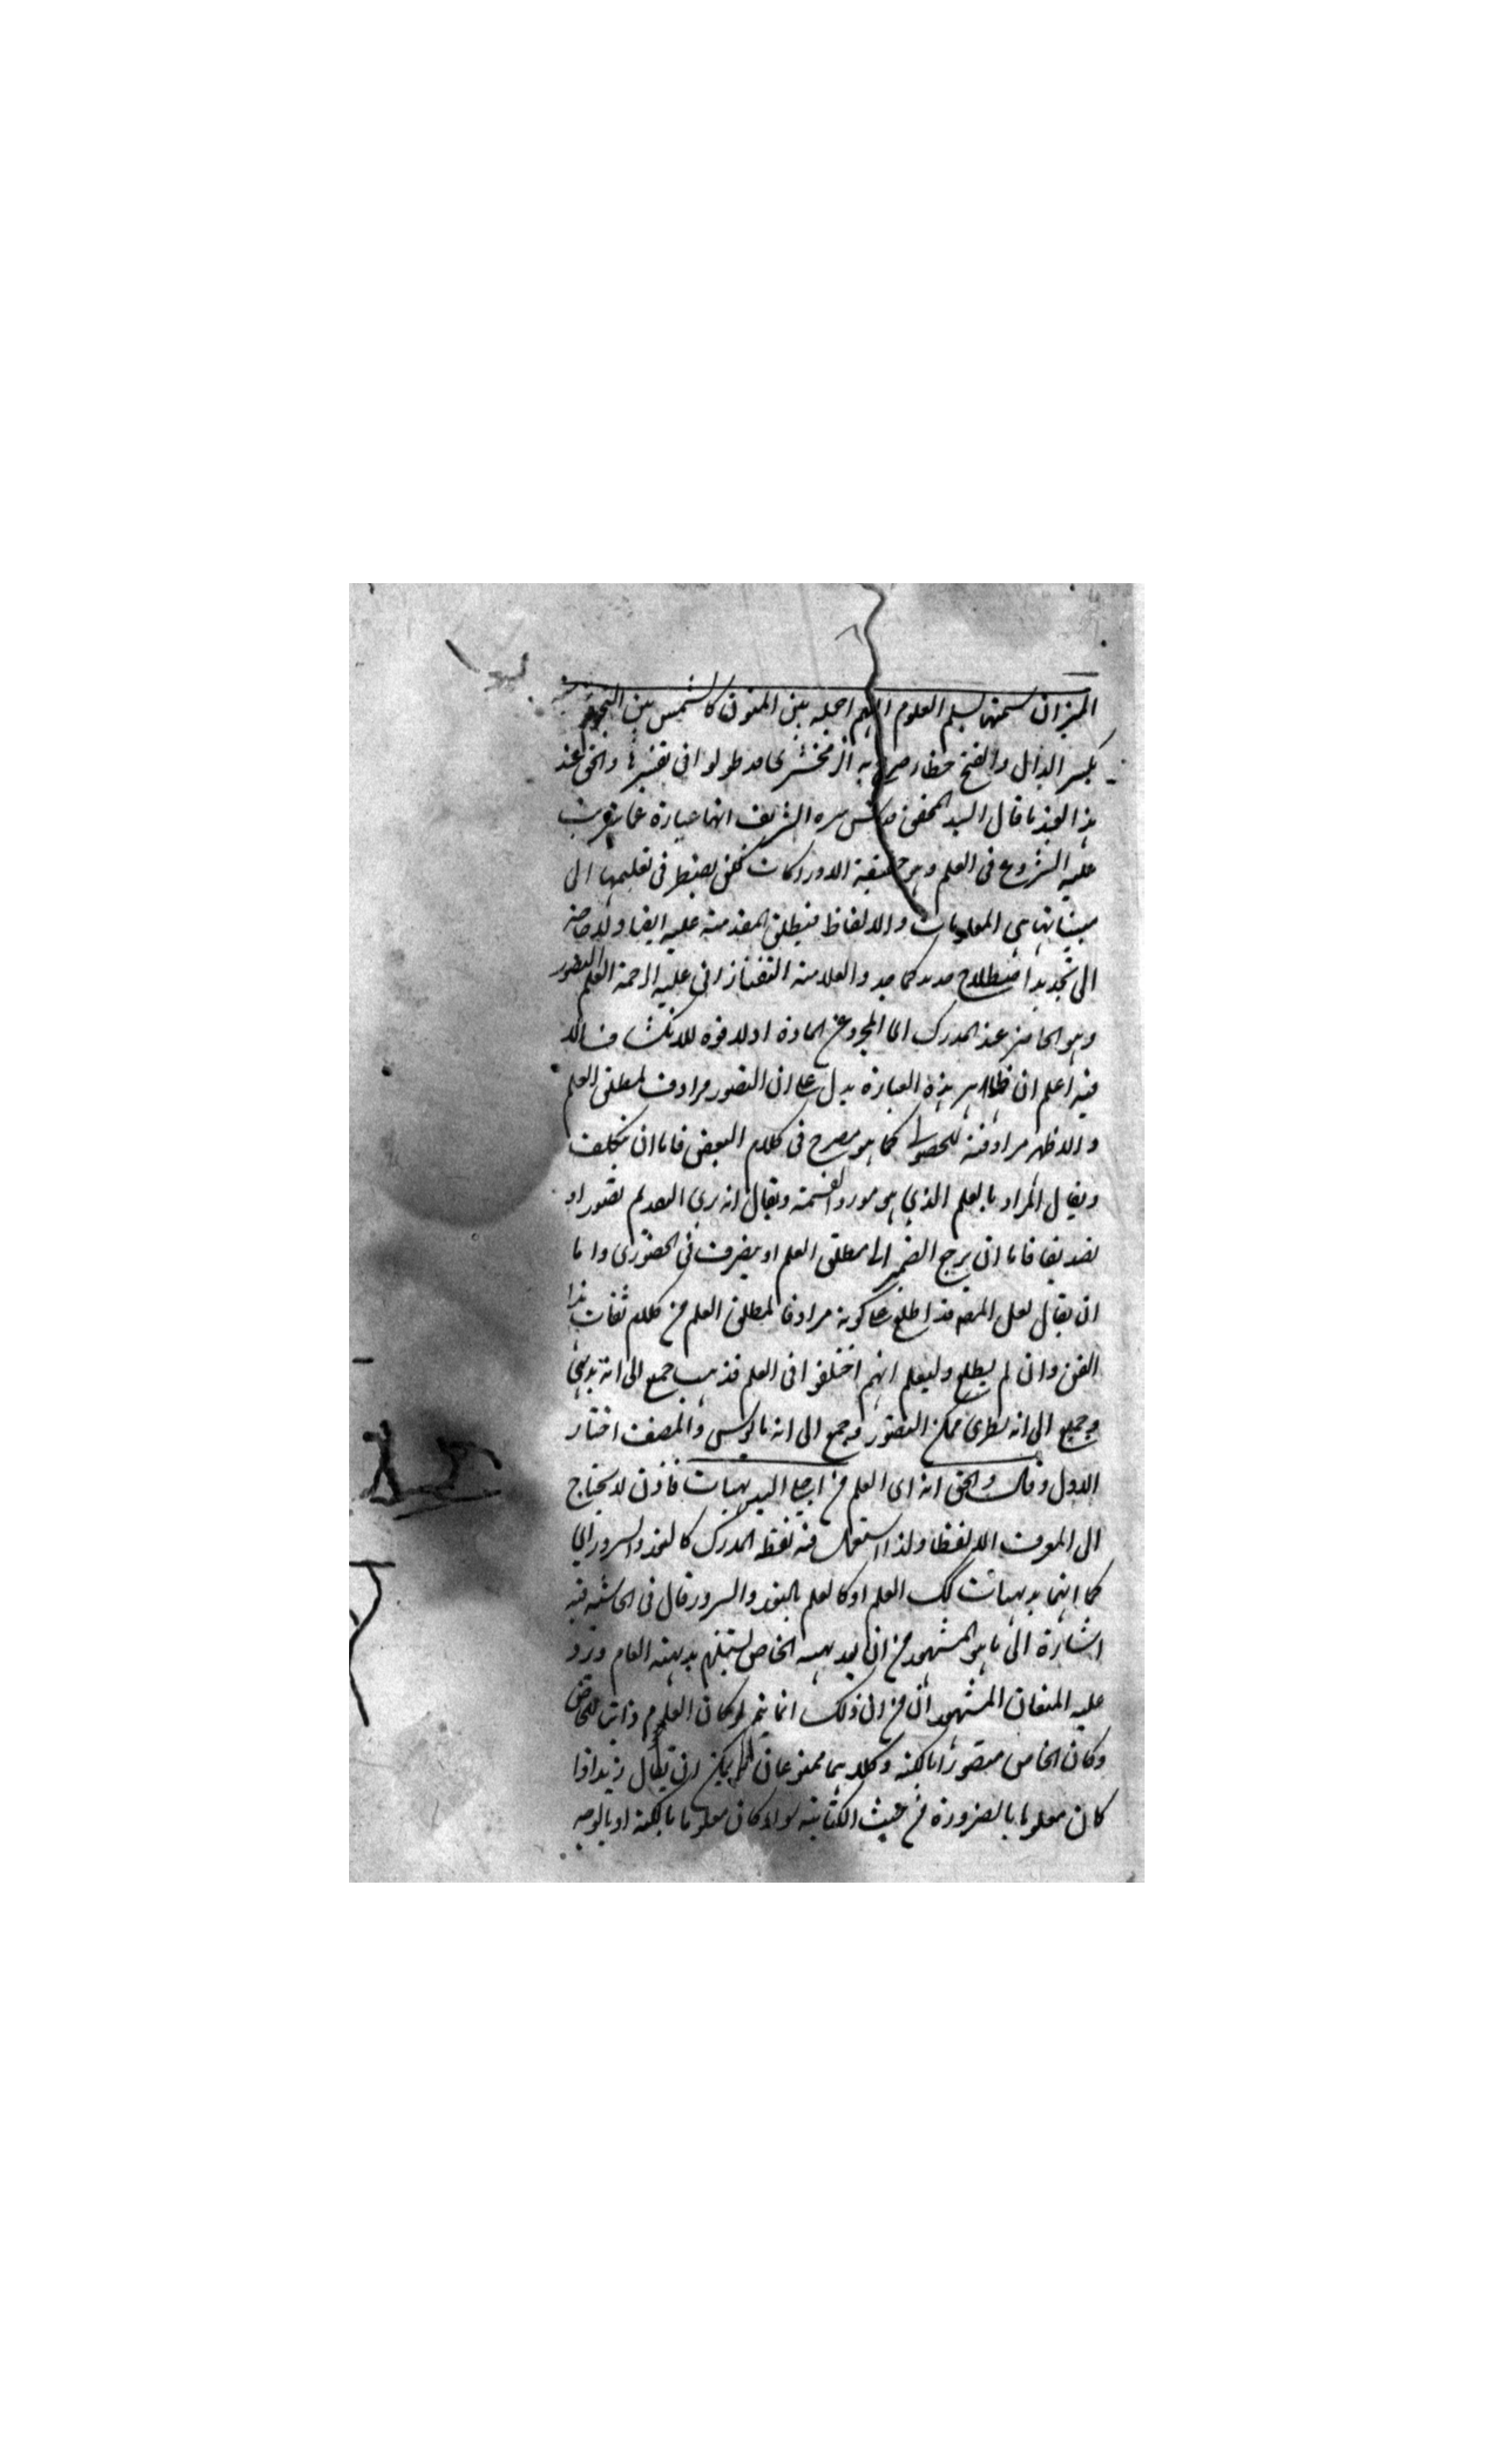 الميزان سميتها بسلم العلوم اللهم اجعله بين المتون كالشمس بين النجوم
بكسر الدال والفتح خطاء صرح به الزمخشري قد طولوا في تفسيرها والحق عند
هذا العبد ما قال السيد المحقق قدس سره الشريف انها عبارة عما يتوقف
عليه الشروع في العلم وهو حقيقة الادراكات لكن يضطر في تعليمها الى
هي المعلومات والالفاظ فيطلق المقدمة عليه ايضا ولا حاجة
الى تجديد اصطلاح جديد كما جدد العلامة التفتازاني عليه الرحمة العلم التصور
وهو الحاضر عند المدرك اما المجرد عن المادة اولا قوله للانكشاف
فيه اعلم ان ظاهر هذه العبارة يدل على ان التصور مرادف لمطلق العلم
والاظهر مرادفته للحصولي كما هو مصرح في كلام البعض فاما ان يتكلف
ويقال المراد بالعلم الذي هو مورد القسمة ويقال انه تصور او
تصديق فاما ان يرجع الضمير الى مطلق العلم او يصرف في الحضوري واما
ان يقال لعل المصنف قد اطلع على كونه مرادفا لمطلق العلم من كلام ثقات هذا
الفن وان لم يطلع وليعلم انهم اختلفوا في العلم فذهب جمع الى انه بديهي
وجمع الى انه نظري ممكن التصور وجمع الى انه مايوس والمصنف اختار
الاول وقال والحق انه اى العلم من اجلى البديهيات فاذن لا يحتاج
الى المعرف الا لفظا ولذا استعمل فيه لفظ المدرك كالنور والسرور اى
كما انهما بديهيات كك العلم او كالعلم بالنور والسرور قال في الحاشية فيه
اشارة الى ما هو المشهور من ان بديهية الخاص يستلزم بديهية العام ويرد
عليه المنعان المشهوران من ان ذلك انما يتم لو كان العلم ذاتيا للخاص
وكان الخاص متصورا بالكنه وكلاهما ممنوعان يمكن ان يقال زيد اذا
كان معلوما بالضرورة من حيث الكتابة سواء كان معلوما بالكنه او بالوجه